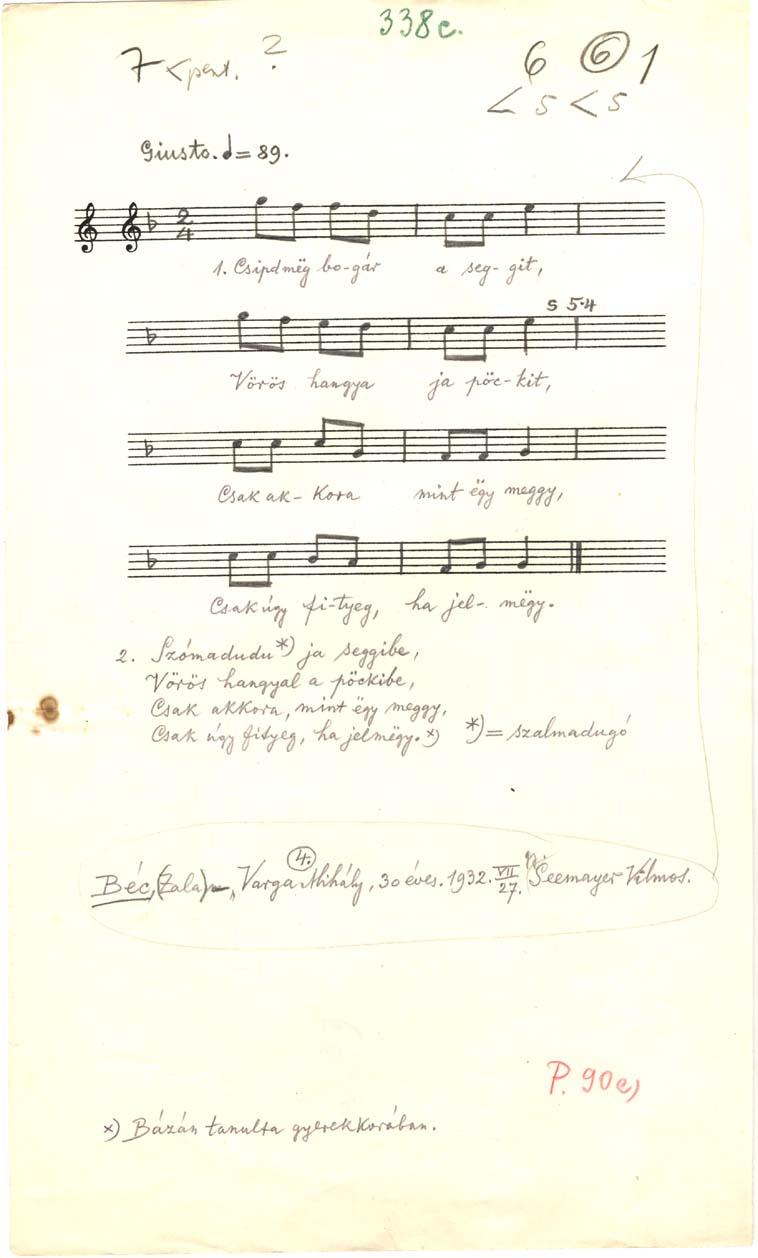 338c.
7 < pent. ?
6 6 1
< 5 < 5
Giusto. = 89.
2
4
1. Csípdmëg bo-gár a seg-git,
5 5·4
Vörös hangya ja pöc-kit,
Csak ak-kora mint ëgy meggy,
Csak úgy fi-tyeg, ha jel- mëgy.
2. Szómadudu*) ja seggibe,
Vörös hangyal a pöckibe,
Csak akkora, mint ëgy meggy,
Csak úgy fityeg, ha jelmëgy. x) *) = szalmadugó
4.
Béc, (Zala), Varga Mihály, 30 éves. 1932. VII 27. Seemayer Vilmos.
P. 90e)
x) Bázán tanulta gyerekkorában.